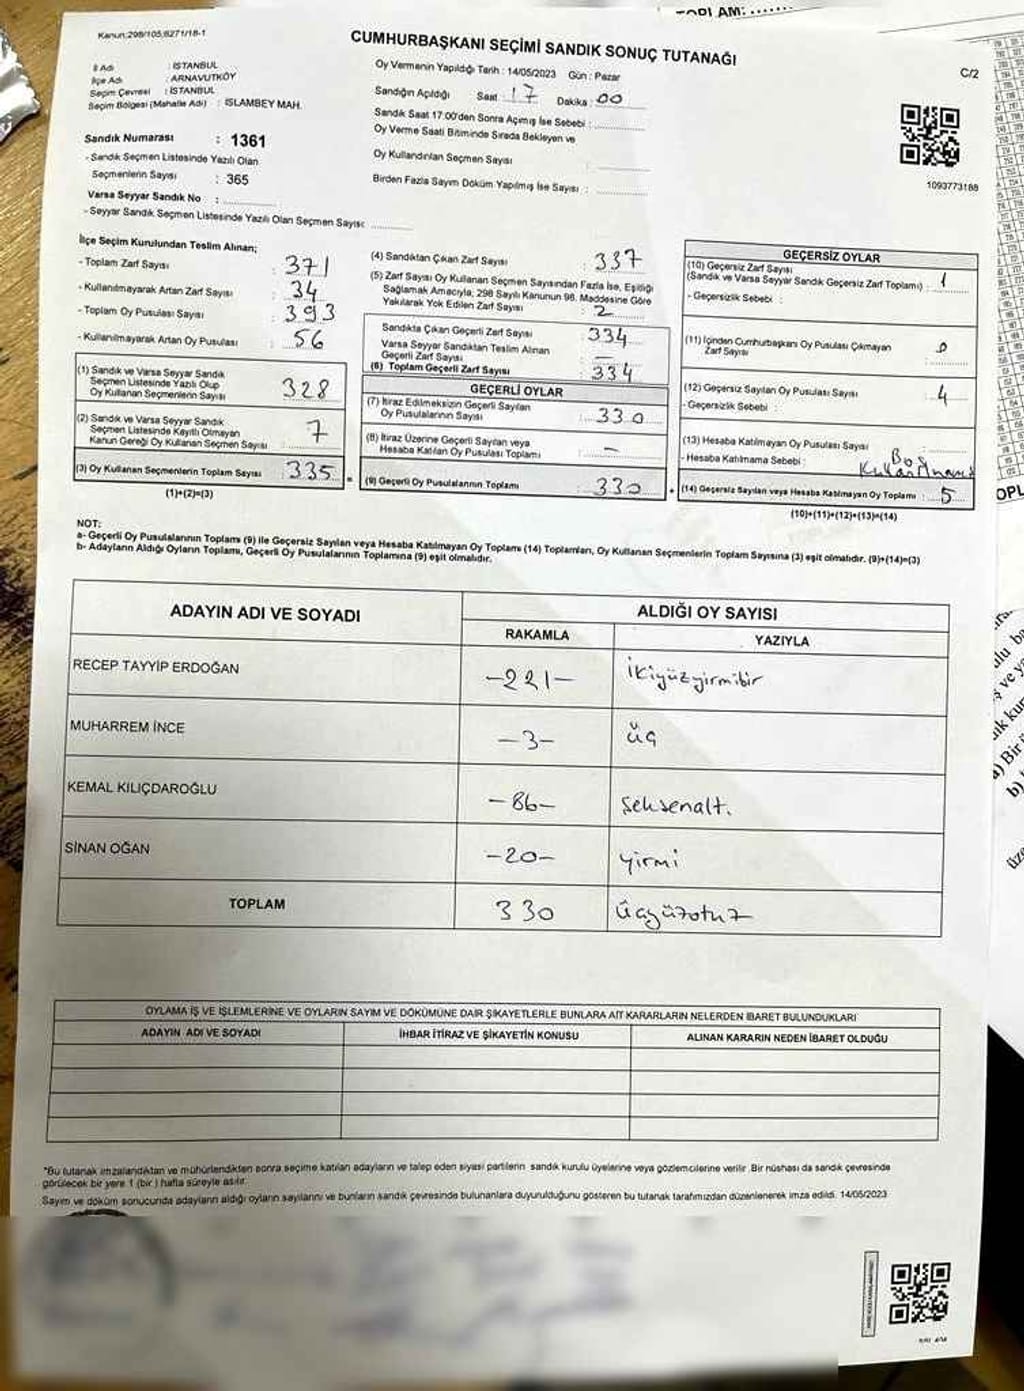 TOPLAM:.......
Kanun:298/105,6271/18-1
CUMHURBAŞKANI SEÇİMİ SANDIK SONUÇ TUTANAĞI
C/2
İl Adı : İSTANBUL
İlçe Adı : ARNAVUTKÖY
Seçim Çevresi : İSTANBUL
Seçim Bölgesi (Mahalle Adı) : İSLAMBEY MAH.
Oy Vermenin Yapıldığı Tarih : 14/05/2023 Gün : Pazar
Sandığın Açıldığı Saat 17 Dakika : 00
Sandık Saat 17.00'den Sonra Açılmış İse Sebebi :
Oy Verme Saati Bitiminde Sırada Bekleyen ve
Oy Kullandırılan Seçmen Sayısı :
Birden Fazla Sayım Döküm Yapılmış İse Sayısı :
1093773188
Sandık Numarası : 1361
- Sandık Seçmen Listesinde Yazılı Olan
Seçmenlerin Sayısı : 365
Varsa Seyyar Sandık No :
- Seyyar Sandık Seçmen Listesinde Yazılı Olan Seçmen Sayısı:
İlçe Seçim Kurulundan Teslim Alınan;
- Toplam Zarf Sayısı : 371
- Kullanılmayarak Artan Zarf Sayısı : 34
- Toplam Oy Pusulası Sayısı : 393
- Kullanılmayarak Artan Oy Pusulası : 56
(1) Sandık ve Varsa Seyyar Sandık
Seçmen Listesinde Yazılı Olup
Oy Kullanan Seçmenlerin Sayısı : 328
(2) Sandık ve Varsa Seyyar Sandık
Seçmen Listesinde Kayıtlı Olmayan
Kanun Gereği Oy Kullanan Seçmen Sayısı : 7
(3) Oy Kullanan Seçmenlerin Toplam Sayısı : 335
(1)+(2)=(3)
(4) Sandıktan Çıkan Zarf Sayısı : 337
(5) Zarf Sayısı Oy Kullanan Seçmen Sayısından Fazla İse, Eşitliği
Sağlamak Amacıyla; 298 Sayılı Kanunun 98. Maddesine Göre
Yakılarak Yok Edilen Zarf Sayısı : 2
Sandıkta Çıkan Geçerli Zarf Sayısı : 334
Varsa Seyyar Sandıktan Teslim Alınan
Geçerli Zarf Sayısı : —
(6) Toplam Geçerli Zarf Sayısı : 334
GEÇERLİ OYLAR
(7) İtiraz Edilmeksizin Geçerli Sayılan
Oy Pusulalarının Sayısı : 330
(8) İtiraz Üzerine Geçerli Sayılan veya
Hesaba Katılan Oy Pusulası Toplamı : —
(9) Geçerli Oy Pusulalarının Toplamı : 330
GEÇERSİZ OYLAR
(10) Geçersiz Zarf Sayısı
(Sandık ve Varsa Seyyar Sandık Geçersiz Zarf Toplamı) : 1
- Geçersizlik Sebebi :
(11) İçinden Cumhurbaşkanı Oy Pusulası Çıkmayan
Zarf Sayısı : 0
(12) Geçersiz Sayılan Oy Pusulası Sayısı : 4
- Geçersizlik Sebebi :
(13) Hesaba Katılmayan Oy Pusulası Sayısı :
- Hesaba Katılmama Sebebi : Boş
(14) Geçersiz Sayılan veya Hesaba Katılmayan Oy Toplamı : 5
(10)+(11)+(12)+(13)=(14)
NOT:
a- Geçerli Oy Pusulalarının Toplamı (9) ile Geçersiz Sayılan veya Hesaba Katılmayan Oy Toplamı (14) Toplamları, Oy Kullanan Seçmenlerin Toplam Sayısına (3) eşit olmalıdır. (9)+(14)=(3)
b- Adayların Aldığı Oyların Toplamı, Geçerli Oy Pusulalarının Toplamına (9) eşit olmalıdır.
ADAYIN ADI VE SOYADI
ALDIĞI OY SAYISI
RAKAMLA YAZIYLA
RECEP TAYYİP ERDOĞAN -221- ikiyüzyirmibir
MUHARREM İNCE -3- üç
KEMAL KILIÇDAROĞLU -86- seksenaltı
SİNAN OĞAN -20- yirmi
TOPLAM 330 üçyüzotuz
OYLAMA İŞ VE İŞLEMLERİNE VE OYLARIN SAYIM VE DÖKÜMÜNE DAİR ŞİKAYETLERLE BUNLARA AİT KARARLARIN NELERDEN İBARET BULUNDUKLARI
ADAYIN ADI VE SOYADI İHBAR İTİRAZ VE ŞİKAYETİN KONUSU ALINAN KARARIN NEDEN İBARET OLDUĞU
*Bu tutanak imzalandıktan ve mühürlendikten sonra seçime katılan adayların ve talep eden siyasi partilerin sandık kurulu üyelerine veya gözlemcilerine verilir. Bir nüshası da sandık çevresinde
görülecek bir yere 1 (bir) hafta süreyle asılır.
Sayım ve döküm sonucunda adayların aldığı oyların sayılarını ve bunların sandık çevresinde bulunanlara duyurulduğunu gösteren bu tutanak tarafımızdan düzenlenerek imza edildi. 14/05/2023